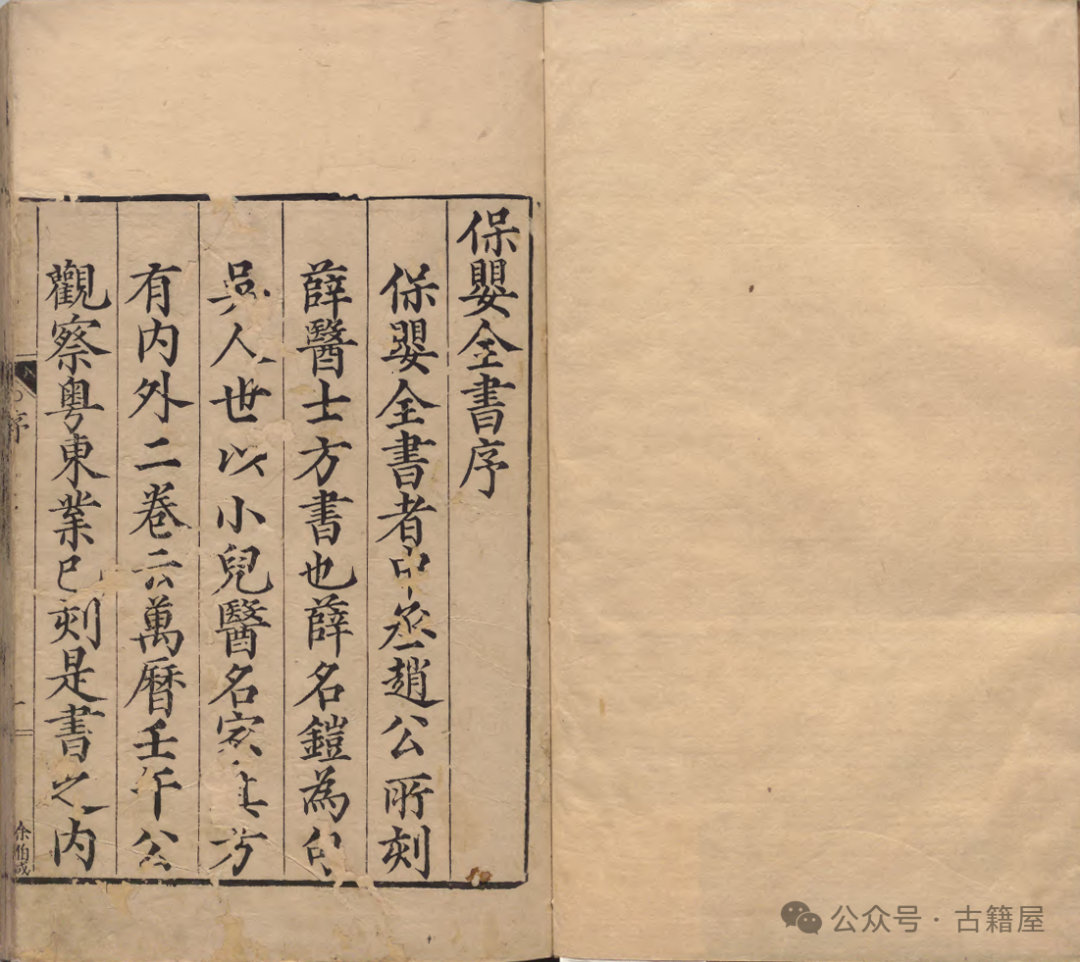 保嬰全書序
保嬰全書者中丞趙公所刻
薛醫士方書也薛名鎧為
吳人世以小兒醫名家其方
有内外二卷云萬曆壬午公
觀察粵東業已刻是書之内
序
一
余伯成
公众号·古籍屋